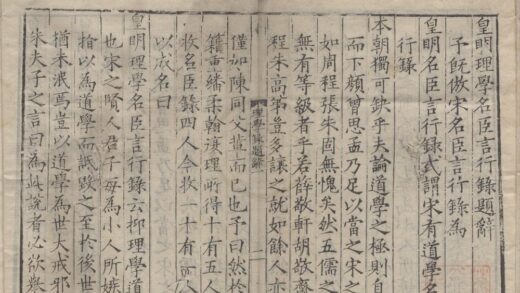 皇明理學名臣言行錄題辭
予旣倣宋名臣言行錄為
皇明名臣言行錄或謂宋有道學名
行錄
本朝獨可缺乎夫論道學之極則自
而下顏曾思孟乃足以當之宋之
如周程張朱固無愧矣然五儒之
無有等級者乎若薛敬軒胡敬齋
程朱高第豈多讓之就如餘人亦
理學錄題辭 一
僅如陳同父輩而已也予曰然於
籍重繙柔翰復理所得十有五人
收名臣錄四人合收一十有
以成名曰
皇明理學名臣言行錄云抑理學道
也宋之賢人君子每為小人所嫉
指以為道學而詆毀之至於後世
猶未泯焉豈以道學為世大戒邪
朱夫子之言曰為此說者必欲舉